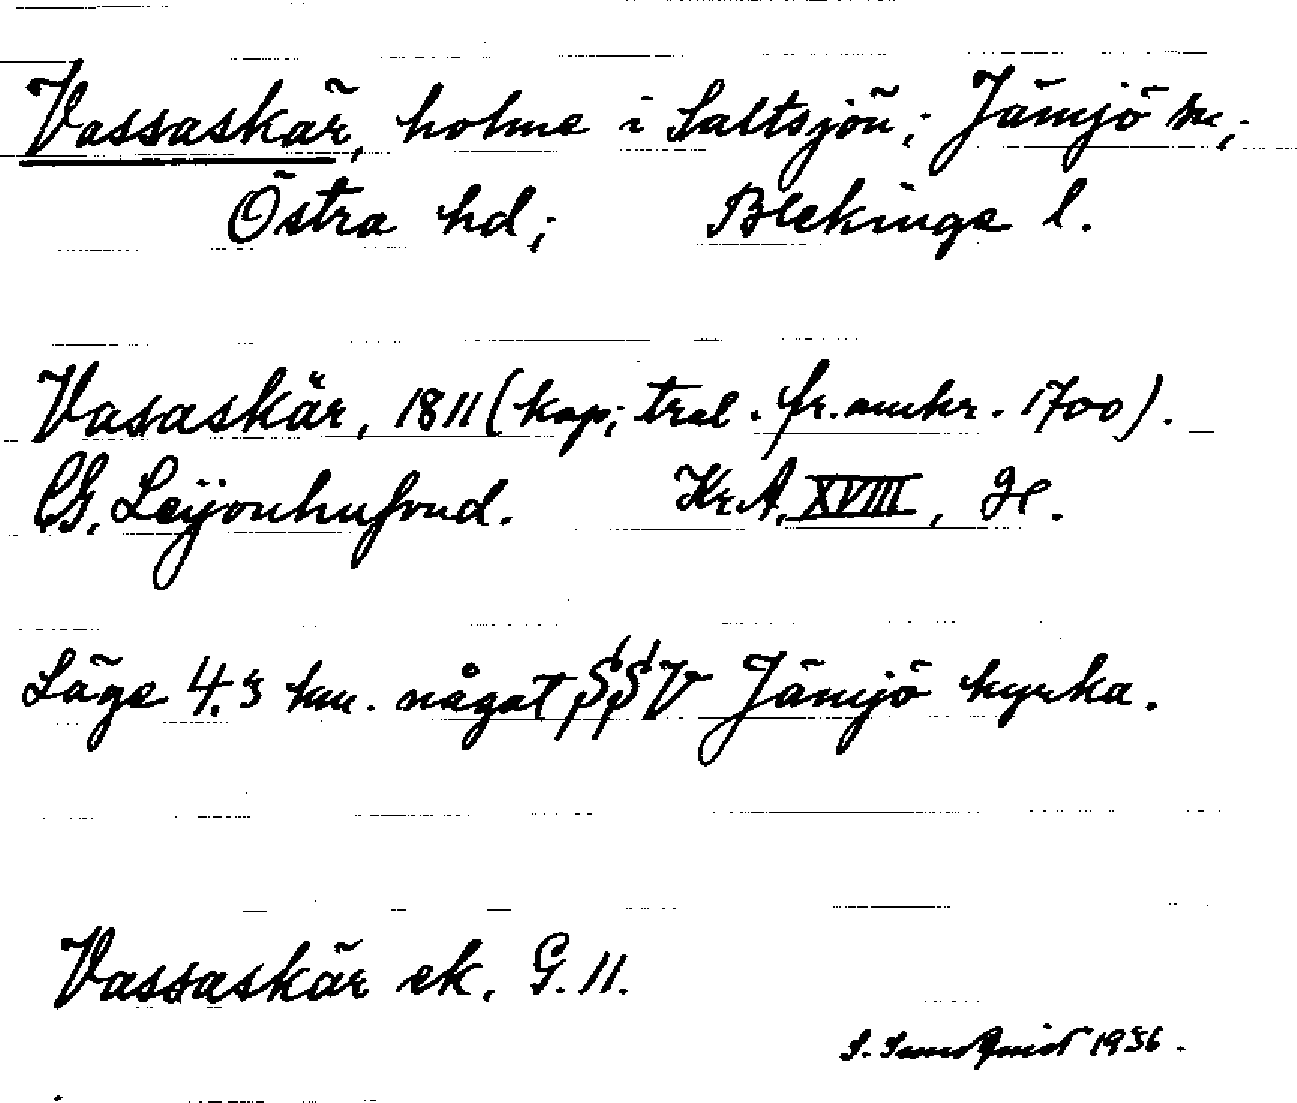 Vassaskär, holme i Saltsjön; Jämjö sn;
Östra hd; Blekinge l.
Vasaskär, 1811 (kop; trol. fr. omkr. 1700).
CG. Leijonhufvud. Kr.A. XVIII, H.
Läge 4.5 km. något SSV Jämjö kyrka.
Vassaskär ek. G. 11.
S. 1936.